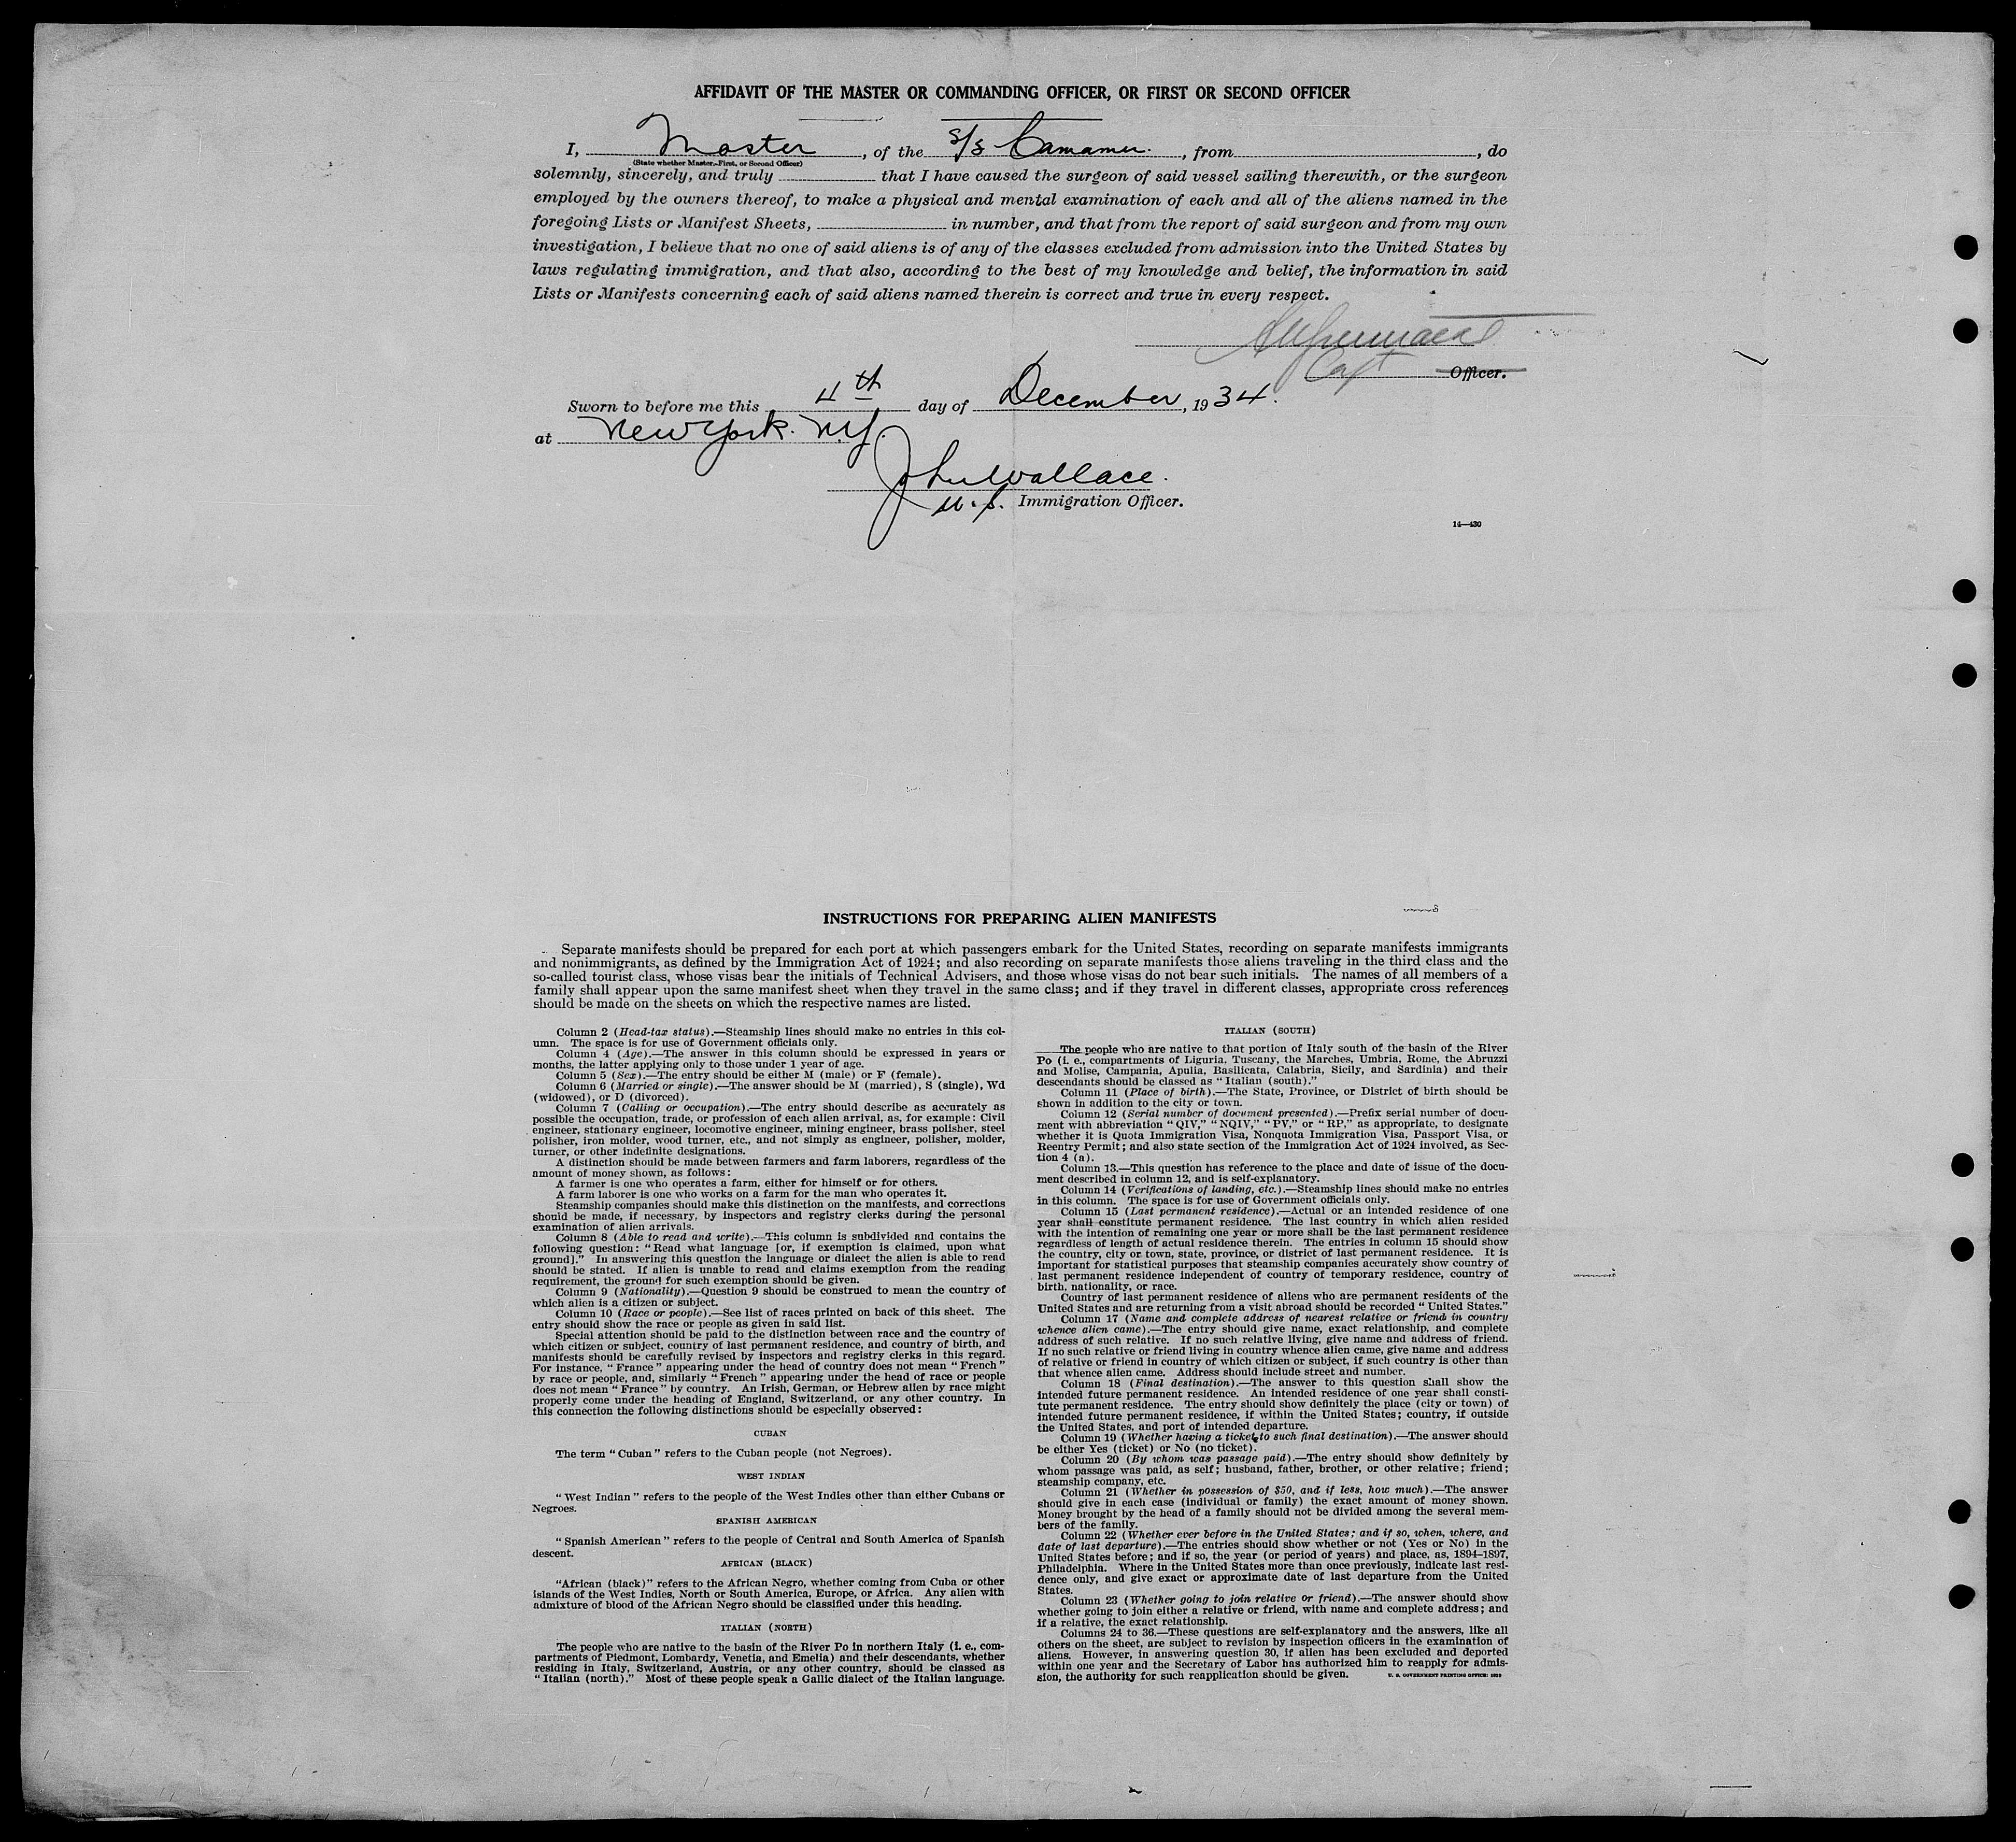 AFFIDAVIT OF THE MASTER OR COMMANDING OFFICER, OR FIRST OR SECOND OFFICER
I, Master, of the S/S, from, do
(State whether Master, First, or Second Officer)
solemnly, sincerely, and truly that I have caused the surgeon of said vessel sailing therewith, or the surgeon
employed by the owners thereof, to make a physical and mental examination of each and all of the aliens named in the
foregoing Lists or Manifest Sheets, in number, and that from the report of said surgeon and from my own
investigation, I believe that no one of said aliens is of any of the classes excluded from admission into the United States by
laws regulating immigration, and that also, according to the best of my knowledge and belief, the information in said
Lists or Manifests concerning each of said aliens named therein is correct and true in every respect.
Capt Officer.
Sworn to before me this 4th day of December, 1934.
at New York. NY.
John Wallace.
U.S. Immigration Officer.
14—430
INSTRUCTIONS FOR PREPARING ALIEN MANIFESTS
Separate manifests should be prepared for each port at which passengers embark for the United States, recording on separate manifests immigrants
and nonimmigrants, as defined by the Immigration Act of 1924; and also recording on separate manifests those aliens traveling in the third class and the
so-called tourist class, whose visas bear the initials of Technical Advisers, and those whose visas do not bear such initials. The names of all members of a
family shall appear upon the same manifest sheet when they travel in the same class; and if they travel in different classes, appropriate cross references
should be made on the sheets on which the respective names are listed.
Column 2 (Head-tax status).—Steamship lines should make no entries in this col-
umn. The space is for use of Government officials only.
Column 4 (Age).—The answer in this column should be expressed in years or
months, the latter applying only to those under 1 year of age.
Column 5 (Sex).—The entry should be either M (male) or F (female).
Column 6 (Married or single).—The answer should be M (married), S (single), Wd
(widowed), or D (divorced).
Column 7 (Calling or occupation).—The entry should describe as accurately as
possible the occupation, trade, or profession of each alien arrival, as, for example: Civil
engineer, stationary engineer, locomotive engineer, mining engineer, brass polisher, steel
polisher, iron molder, wood turner, etc., and not simply as engineer, polisher, molder,
turner, or other indefinite designations.
A distinction should be made between farmers and farm laborers, regardless of the
amount of money shown, as follows:
A farmer is one who operates a farm, either for himself or for others.
A farm laborer is one who works on a farm for the man who operates it.
Steamship companies should make this distinction on the manifests, and corrections
should be made, if necessary, by inspectors and registry clerks during the personal
examination of alien arrivals.
Column 8 (Able to read and write).—This column is subdivided and contains the
following question: "Read what language [or, if exemption is claimed, upon what
ground]." In answering this question the language or dialect the alien is able to read
should be stated. If alien is unable to read and claims exemption from the reading
requirement, the ground for such exemption should be given.
Column 9 (Nationality).—Question 9 should be construed to mean the country of
which alien is a citizen or subject.
Column 10 (Race or people).—See list of races printed on back of this sheet. The
entry should show the race or people as given in said list.
Special attention should be paid to the distinction between race and the country of
which citizen or subject, country of last permanent residence, and country of birth, and
manifests should be carefully revised by inspectors and registry clerks in this regard.
For instance, "France" appearing under the head of country does not mean "French"
by race or people, and, similarly "French" appearing under the head of race or people
does not mean "France" by country. An Irish, German, or Hebrew alien by race might
properly come under the heading of England, Switzerland, or any other country. In
this connection the following distinctions should be especially observed:
CUBAN
The term "Cuban" refers to the Cuban people (not Negroes).
WEST INDIAN
"West Indian" refers to the people of the West Indies other than either Cubans or
Negroes.
SPANISH AMERICAN
"Spanish American" refers to the people of Central and South America of Spanish
descent.
AFRICAN (BLACK)
"African (black)" refers to the African Negro, whether coming from Cuba or other
islands of the West Indies, North or South America, Europe, or Africa. Any alien with
admixture of blood of the African Negro should be classified under this heading.
ITALIAN (NORTH)
The people who are native to the basin of the River Po in northern Italy (i. e., com-
partments of Piedmont, Lombardy, Venetia, and Emelia) and their descendants, whether
residing in Italy, Switzerland, Austria, or any other country, should be classed as
"Italian (north)." Most of these people speak a Gallic dialect of the Italian language.
ITALIAN (SOUTH)
The people who are native to that portion of Italy south of the basin of the River
Po (i. e., compartments of Liguria, Tuscany, the Marches, Umbria, Rome, the Abruzzi
and Molise, Campania, Apulia, Basilicata, Calabria, Sicily, and Sardinia) and their
descendants should be classed as "Italian (south)."
Column 11 (Place of birth).—The State, Province, or District of birth should be
shown in addition to the city or town.
Column 12 (Serial number of document presented).—Prefix serial number of docu-
ment with abbreviation "QIV," "NQIV," "PV," or "RP," as appropriate, to designate
whether it is Quota Immigration Visa, Nonquota Immigration Visa, Passport Visa, or
Reentry Permit; and also state section of the Immigration Act of 1924 involved, as Sec-
tion 4 (a).
Column 13.—This question has reference to the place and date of issue of the docu-
ment described in column 12, and is self-explanatory.
Column 14 (Verifications of landing, etc.).—Steamship lines should make no entries
in this column. The space is for use of Government officials only.
Column 15 (Last permanent residence).—Actual or an intended residence of one
year shall constitute permanent residence. The last country in which alien resided
with the intention of remaining one year or more shall be the last permanent residence
regardless of length of actual residence therein. The entries in column 15 should show
the country, city or town, state, province, or district of last permanent residence. It is
important for statistical purposes that steamship companies accurately show country of
last permanent residence independent of country of temporary residence, country of
birth, nationality, or race.
Country of last permanent residence of aliens who are permanent residents of the
United States and are returning from a visit abroad should be recorded "United States."
Column 17 (Name and complete address of nearest relative or friend in country
whence alien came).—The entry should give name, exact relationship, and complete
address of such relative. If no such relative living, give name and address of friend.
If no such relative or friend living in country whence alien came, give name and address
of relative or friend in country of which citizen or subject, if such country is other than
that whence alien came. Address should include street and number.
Column 18 (Final destination).—The answer to this question shall show the
intended future permanent residence. An intended residence of one year shall consti-
tute permanent residence. The entry should show definitely the place (city or town) of
intended future permanent residence, if within the United States; country, if outside
the United States, and port of intended departure.
Column 19 (Whether having a ticket to such final destination).—The answer should
be either Yes (ticket) or No (no ticket).
Column 20 (By whom was passage paid).—The entry should show definitely by
whom passage was paid, as self; husband, father, brother, or other relative; friend;
steamship company, etc.
Column 21 (Whether in possession of $50, and if less, how much).—The answer
should give in each case (individual or family) the exact amount of money shown.
Money brought by the head of a family should not be divided among the several mem-
bers of the family.
Column 22 (Whether ever before in the United States; and if so, when, where, and
date of last departure).—The entries should show whether or not (Yes or No) in the
United States before; and if so, the year (or period of years) and place, as, 1894–1897,
Philadelphia. Where in the United States more than once previously, indicate last resi-
dence only, and give exact or approximate date of last departure from the United
States.
Column 23 (Whether going to join relative or friend).—The answer should show
whether going to join either a relative or friend, with name and complete address; and
if a relative, the exact relationship.
Columns 24 to 36.—These questions are self-explanatory and the answers, like all
others on the sheet, are subject to revision by inspection officers in the examination of
aliens. However, in answering question 30, if alien has been excluded and deported
within one year and the Secretary of Labor has authorized him to reapply for admis-
sion, the authority for such reapplication should be given.
U. S. GOVERNMENT PRINTING OFFICE: